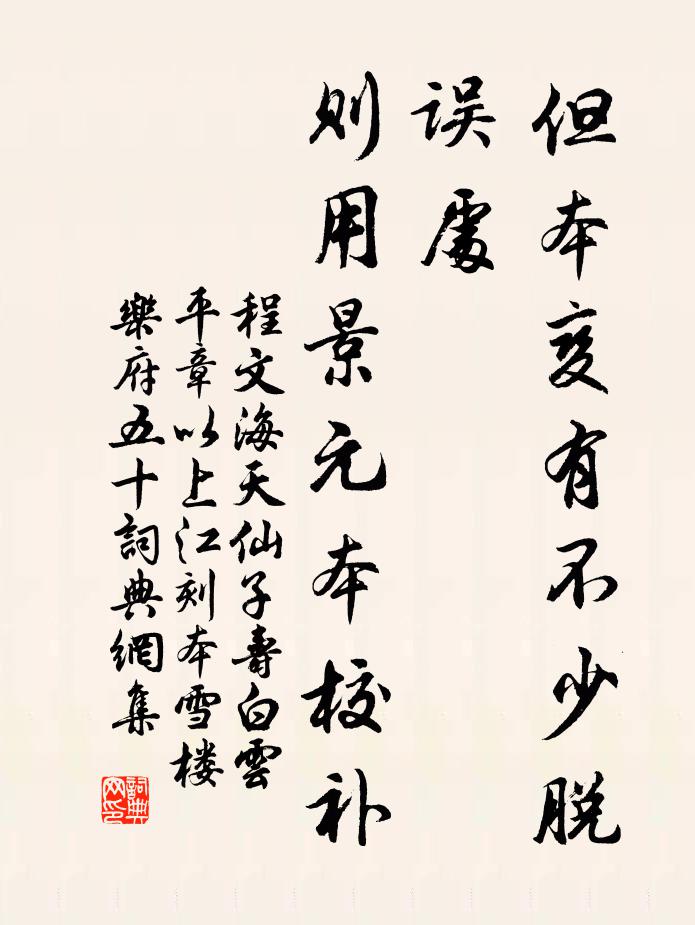 但本变有不少脱
误處
则用景元本校补
程文海天仙子壽白雲
平章以上江刻本雪楼
樂府五十詞典網集
詞典網印